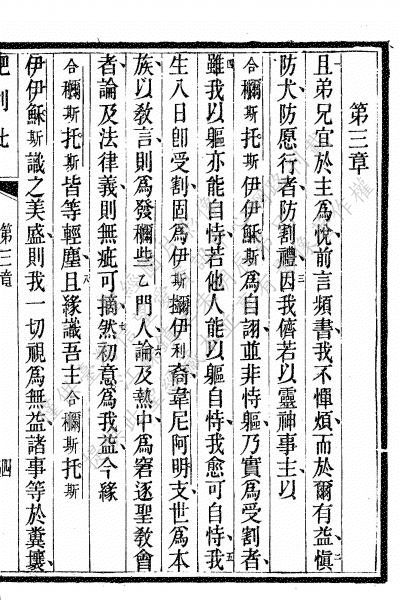 第三章
且弟兄宜於主為悅前言頻書我不憚煩而於爾有益慎
防犬防慝行者防割禮因我儕若以靈神事主以
合禰斯托斯伊伊穌斯為自詡並非恃軀乃實為受割者
雖我以軀亦能自恃若他人能以軀自恃我愈可自恃我
生八日卽受割固為伊斯擲伊利裔韋尼阿明支世為本
族以敎言則為發禰些乙門人論及熱中為窘逐聖敎會
者論及法律義則無疵可摘然初意為我益今緣
合禰斯托斯皆等輕塵且緣識吾主合禰斯托斯
伊伊穌斯識之美盛則我一切視為無益諸事等於糞壤
肥利比
第三章
四